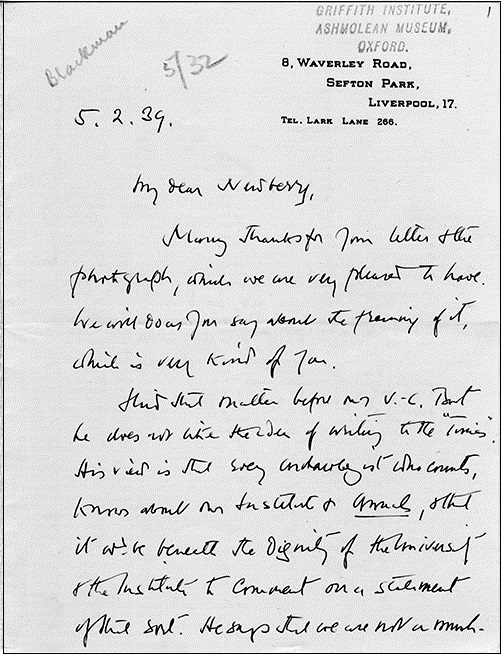 GRIFFITH INSTITUTE,
ASHMOLEAN MUSEUM,
OXFORD.
1
Blackman
5/32
8, WAVERLEY ROAD,
SEFTON PARK,
LIVERPOOL, 17.
TEL. LARK LANE 266.
5. 2. 39.
My dear Newberry,
Many thanks for your letter & the
photograph, which we are very pleased to have.
We will do as you say about the framing of it,
which is very kind of you.
that matter before our V.-C. But
he does not like the idea of writing to the "Times".
His view is that every archaeologist who counts,
knows about our Institute & Annals, & that
it wd. be beneath the Dignity of the University
& the Institute to comment on a statement
of this sort. He says that we are not a much-